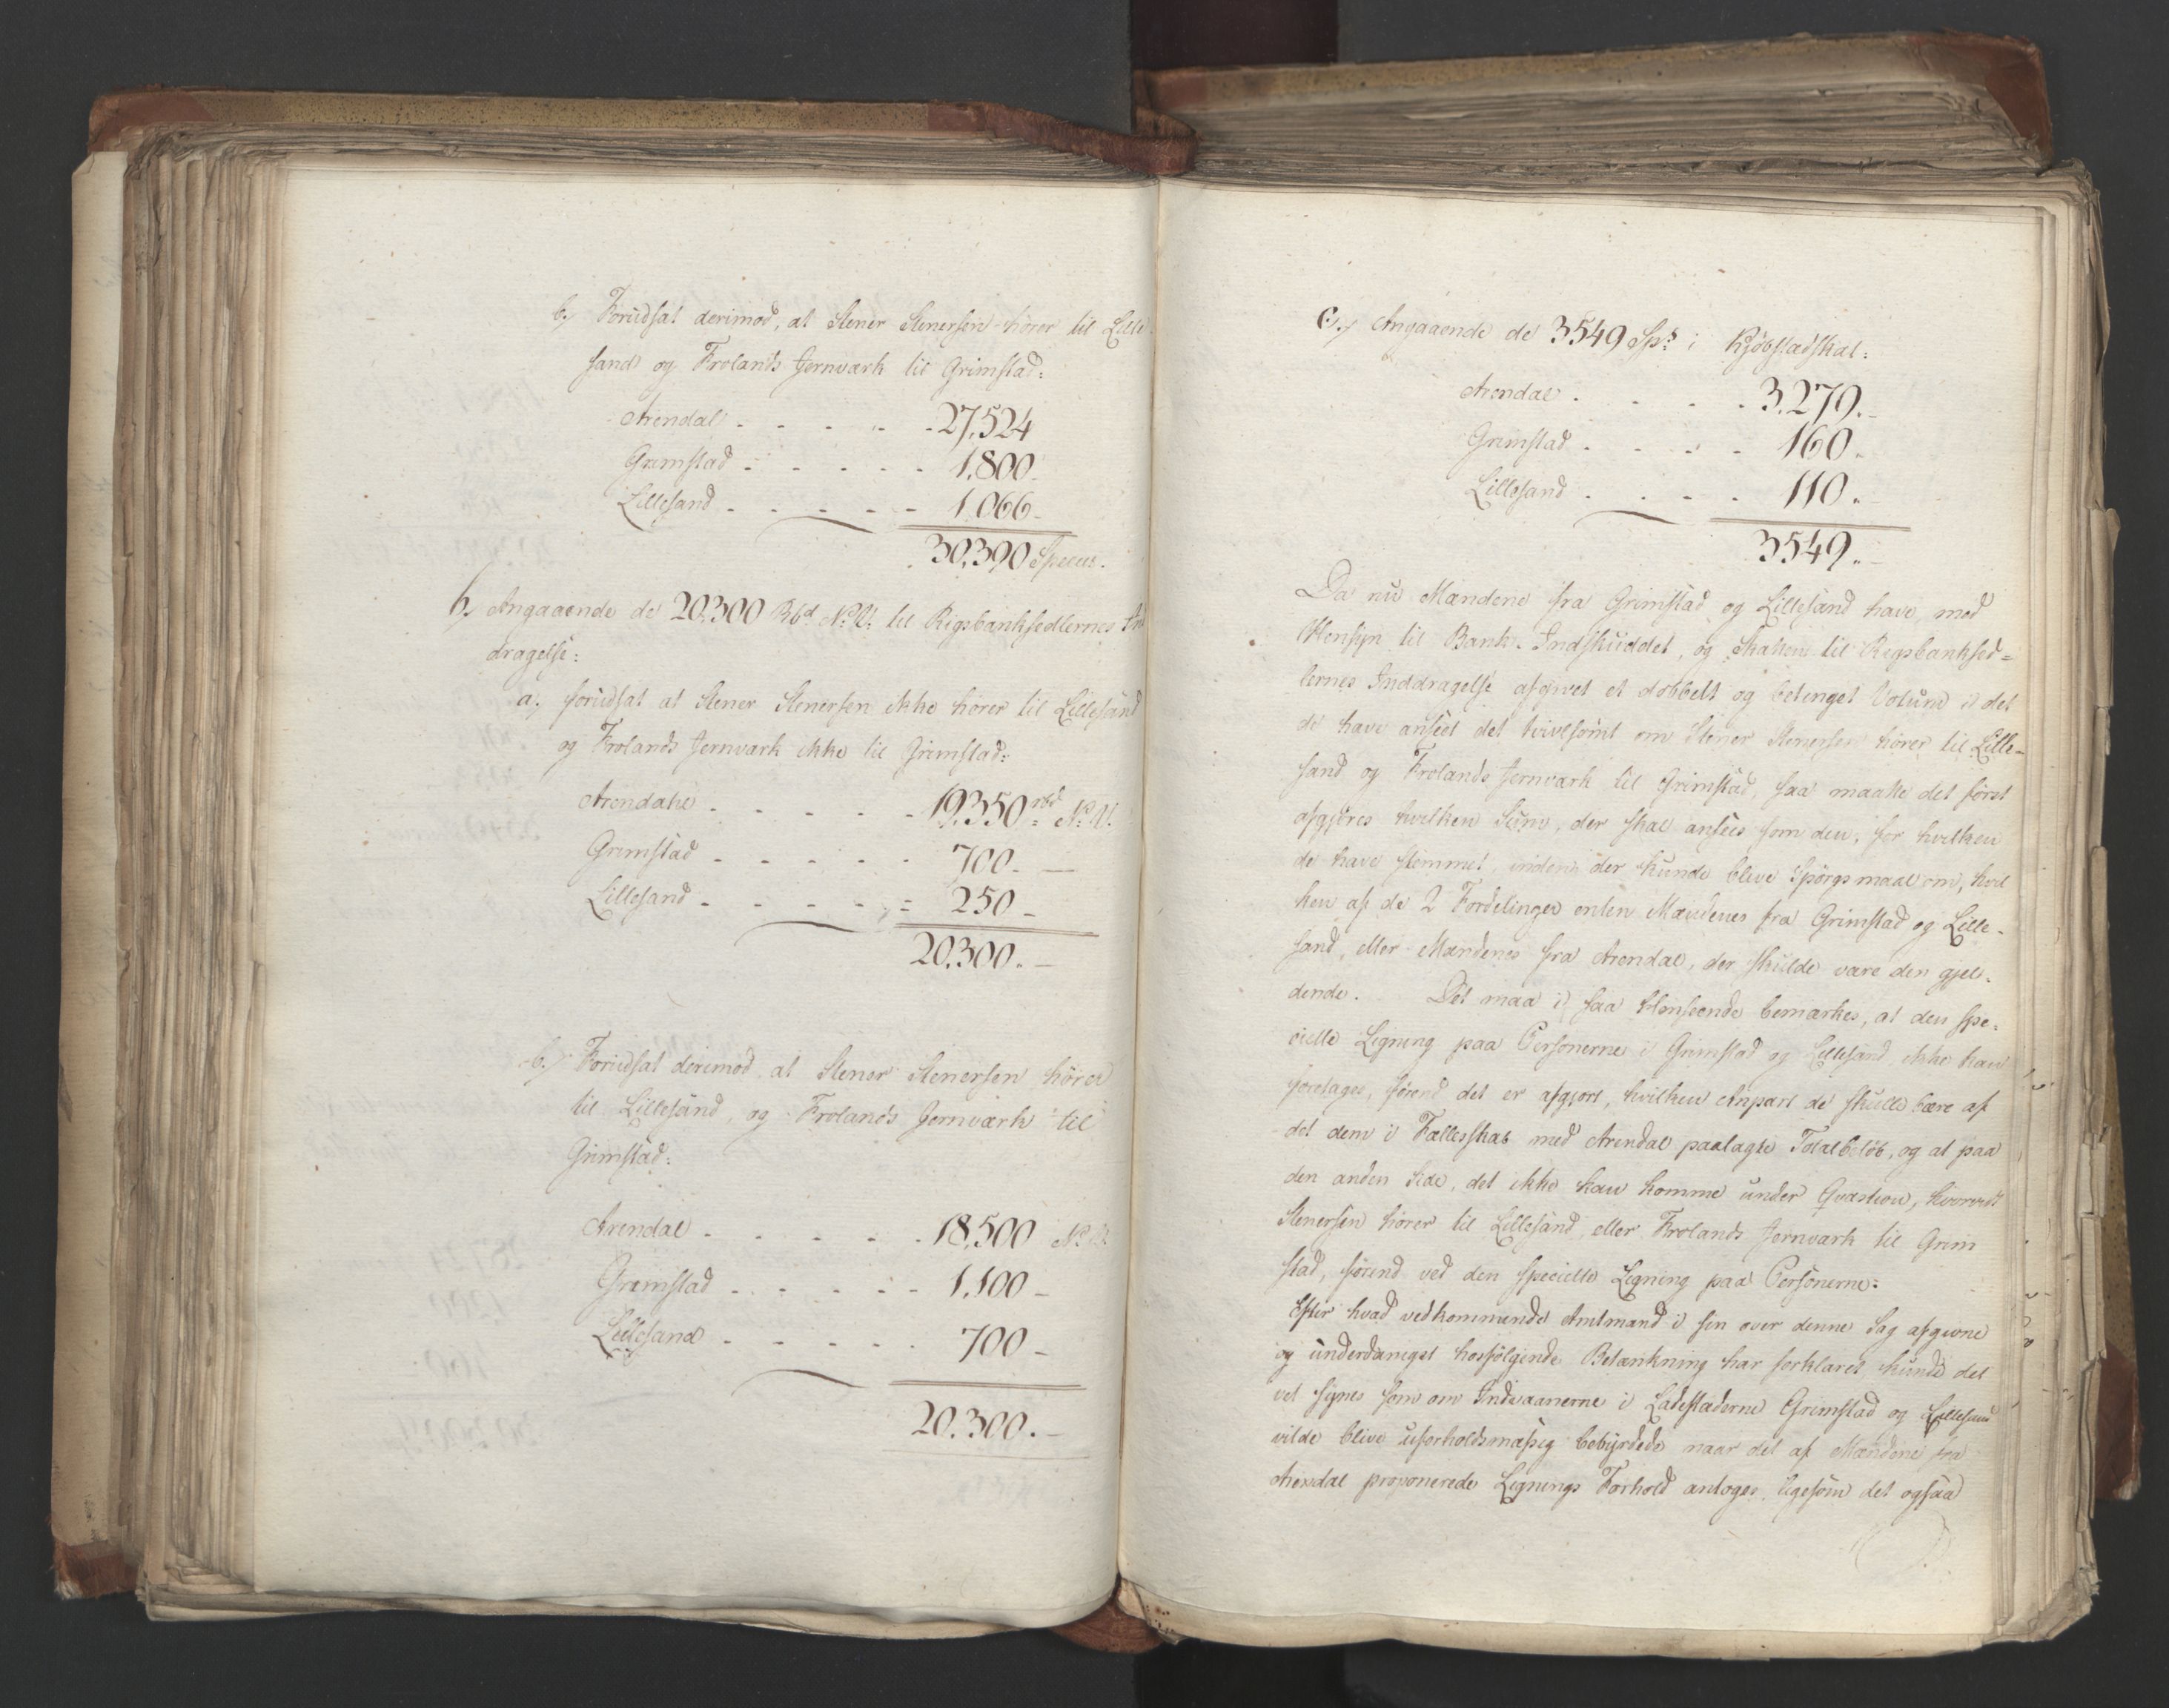 b.) Forudsat derimod, at Stener Stenersen hörer til Lille
sand og Frolands Jernværk til Grimstad:
Arendal - - - - - 27,524
Grimstad - - - - - 1,800-
Lillesand - - - - - 1,066-
30,390 Specier.
b, Angaaende de 20,300 Rbd N.V. til Rigsbanksedlernes Ind
dragelse:
a.) forudsat at Stener Stenersen ikke hörer til Lillesand
og Frolands Jernværk ikke til Grimstad:
Arendal - - - - - 19,350 rbd N.V.
Grimstad - - - - - 700. -
Lillesand - - - - - 250 -
20,300. -
b.) Forudsat derimod at Stener Stenersen hörer
til Lillesand, og Frolands Jernværk til
Grimstad:
Arendal - - - - - 18,500 N.V.
Grimstad - - - - - 1,100 -
Lillesand - - - - - 700 -
20,300. -
c.) Angaaende de 3549 Sps i Kjöbstadskat:
Arendal . - - - - 3,279. -
Grimstad . - - - 160. -
Lillesand . - - - 110. -
3549. -
Da nu Mændene fra Grimstad og Lillesand have, med
Hensyn til Bank-Indskuddet, og Skatten til Rigsbanksed=
lernes Inddragelse afgivet et dobbelt og betinget Votum i det
de have anseet det tvivlsomt om Stener Stenersen hörer til Lille-
sand og Frolands Jernværk til Grimstad, saa maatte det först
afgjöres hvilken Sum, der skal ansees som den, for hvilken
de have stemmet, inden der kunde blive Spörgsmaal om, hvil
ken af de 2 Fordelinger enten Mændenes fra Grimstad og Lille-
sand, eller Mændenes fra Arendal, der skulde være den gjel-
dende. Det maa i saa Henseende bemærkes, at den spe-
cielle Ligning paa Personerne i Grimstad og Lillesand ikke kan
foretages, förend det er afgjort, hvilken Anpart de skulle bære af
det dem i Fællesskab med Arendal paalagte Totalbelöb, og at paa
den anden Side, det ikke kan komme under Qvæstion, hvorvidt
Stenersen hörer til Lillesand, eller Frolands Jernværk til Grim
stad, förend ved den specielle Ligning paa Personerne.
Efter hvad vedkommende Amtmand i sin over denne Sag afgivne
og underdanigst hosfölgende Betænkning har forklaret, kunde det
vel synes som om Indvaanerne i Ladestæderne Grimstad og Lillesand
vilde blive uforholdsmæssig bebyrdede naar det af Mændene fra
Arendal proponerede Lignings Forhold antoges, ligesom det ogsaa